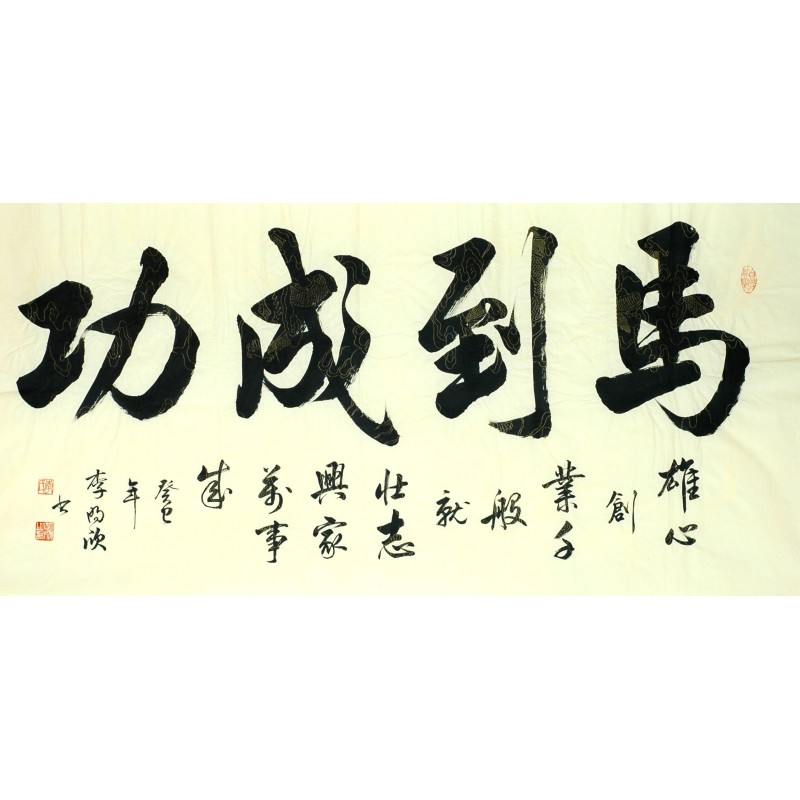 馬到成功
雄心
創
業千
般
就
壯志
興家
萬事
成
癸巳
年
李明欣
书